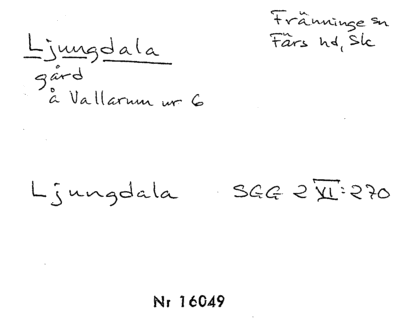 Ljungdala
gård
å Vallarum nr 6
Fränninge sn
Färs hd, Sk
Ljungdala SGG 2 VI:270
Nr 16049